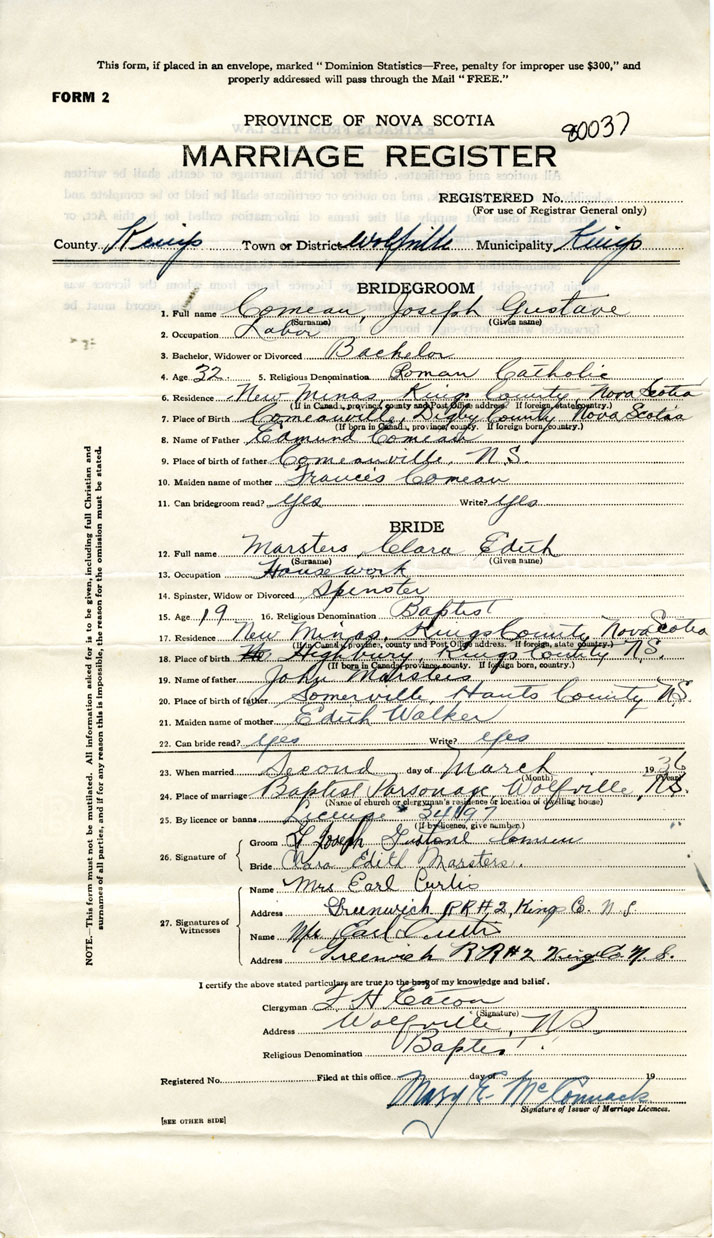 This form, if placed in an envelope, marked "Dominion Statistics—Free, penalty for improper use $300," and
properly addressed will pass through the Mail "FREE."
FORM 2
PROVINCE OF NOVA SCOTIA
80037
MARRIAGE REGISTER
REGISTERED No.
(For use of Registrar General only)
County Kings Town or District Wolfville Municipality Kings
BRIDEGROOM
1. Full name Comeau, Joseph Gustave
(Surname) (Given name)
2. Occupation Labor
3. Bachelor, Widower or Divorced Bachelor
4. Age 32 5. Religious Denomination Roman Catholic
6. Residence New Minas, Kings County, Nova Scotia
(If in Canada, province, county and Post Office address. If foreign, state country.)
7. Place of Birth Comeauville, Digby County, Nova Scotia
(If born in Canada, province, county. If foreign born, country.)
8. Name of Father Edmund Comeau
9. Place of birth of father Comeauville, N.S.
10. Maiden name of mother Frances Comeau
11. Can bridegroom read? yes Write? yes
BRIDE
12. Full name Marsters, Clara Edith
(Surname) (Given name)
13. Occupation Housework
14. Spinster, Widow or Divorced Spinster
15. Age 19 16. Religious Denomination Baptist
17. Residence New Minas, Kings County, Nova Scotia
(If in Canada, province, county and Post Office address. If foreign, state country.)
18. Place of birth Highbury, Kings County N.S.
(If born in Canada, province, county. If foreign born, country.)
19. Name of father John Marsters
20. Place of birth of father Somerville, Hants County N.S.
21. Maiden name of mother Edith Walker
22. Can bride read? yes Write? yes
23. When married Second day of March 1936
(Month) (Year)
24. Place of marriage Baptist Parsonage, Wolfville, N.S.
(Name of church or clergyman's residence or location of dwelling house)
25. By licence or banns License 34197
(If by licence, give number.)
26. Signature of
Groom Joseph Gustave
Bride Clara Edith Marsters.
27. Signatures of Witnesses
Name Mrs Earl Curtis
Address Greenwich RR#2, King C. N S
Name Earl Curtis
Address Greenwich RR#2 King Co. N.S.
I certify the above stated particulars are true to the best of my knowledge and belief.
Clergyman F H Eaton
(Signature)
Address Wolfville, N.S.
Religious Denomination Baptist
Registered No. Filed at this office day of 19
Mary E. McCormack
Signature of Issuer of Marriage Licences.
[SEE OTHER SIDE]
NOTE.—This form must not be mutilated. All information asked for is to be given, including full Christian and
surnames of all parties, and if for any reason this is impossible, the reason for the omission must be stated.